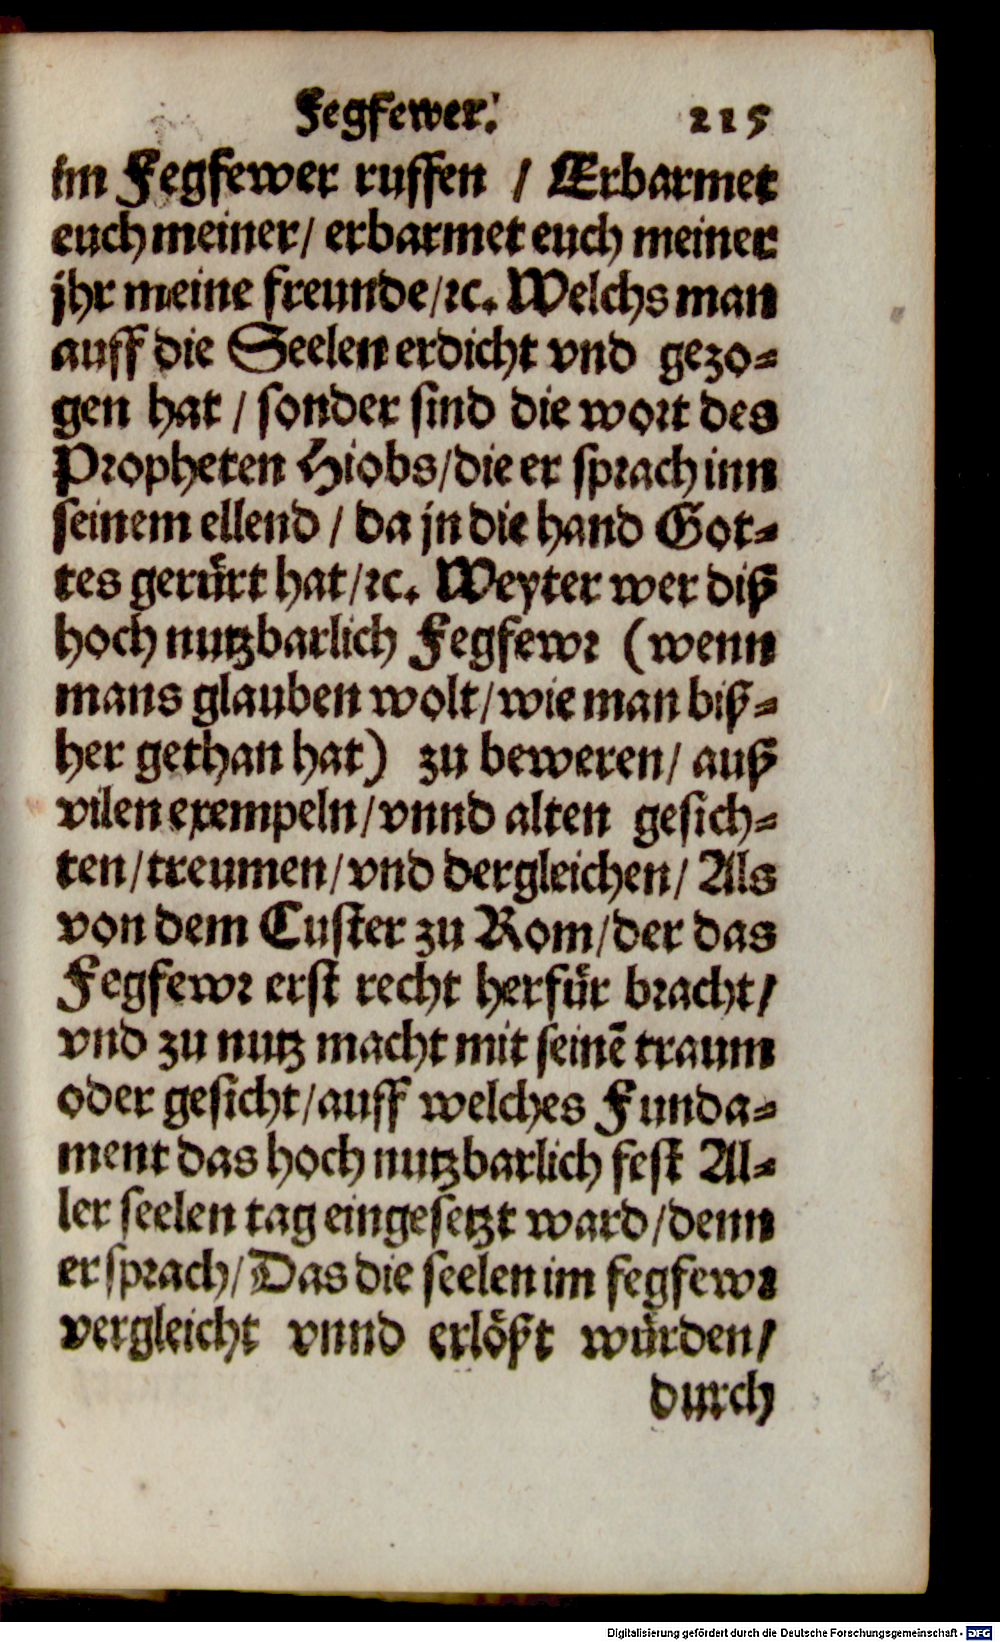 Fegfewer. 215
im Fegfewer ruffen / Erbarmet
euch meiner / erbarmet euch meiner
jhr meine freunde / ꝛc. Welchs man
auff die Seelen erdicht vnd gezo⸗
gen hat / sonder sind die wort des
Propheten Hiobs / die er sprach inn
seinem ellend / da jn die hand Got⸗
tes gerürt hat / ꝛc. Weyter wer diß
hoch nutzbarlich Fegfewr (wenn
mans glauben wolt / wie man biß⸗
her gethan hat) zu beweren / auß
vilen exempeln / vnnd alten gesich⸗
ten / treumen / vnd dergleichen / Als
von dem Custer zu Rom / der das
Fegfewr erst recht herfür bracht /
vnd zu nutz macht mit seinē traum
oder gesicht / auff welches Funda⸗
ment das hoch nutzbarlich fest Al⸗
ler seelen tag eingesetzt ward / denn
er sprach / Das die seelen im fegfewr
vergleicht vnnd erlößt würden /
durch
Digitalisierung gefördert durch die Deutsche Forschungsgemeinschaft - DFG